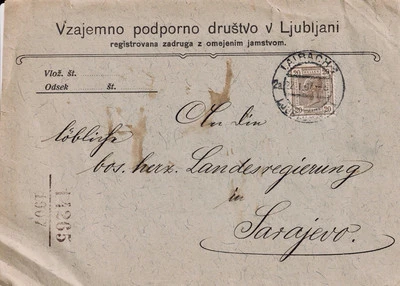 Vzajemno podporno društvo v Ljubljani
registrovana zadruga z omejenim jamstvom.
Vlož. št.
Odsek št.
LAIBACH 2
20 20
An die
löbliche
bos. herz. Landesregierung
in
Sarajevo.
14265
1907